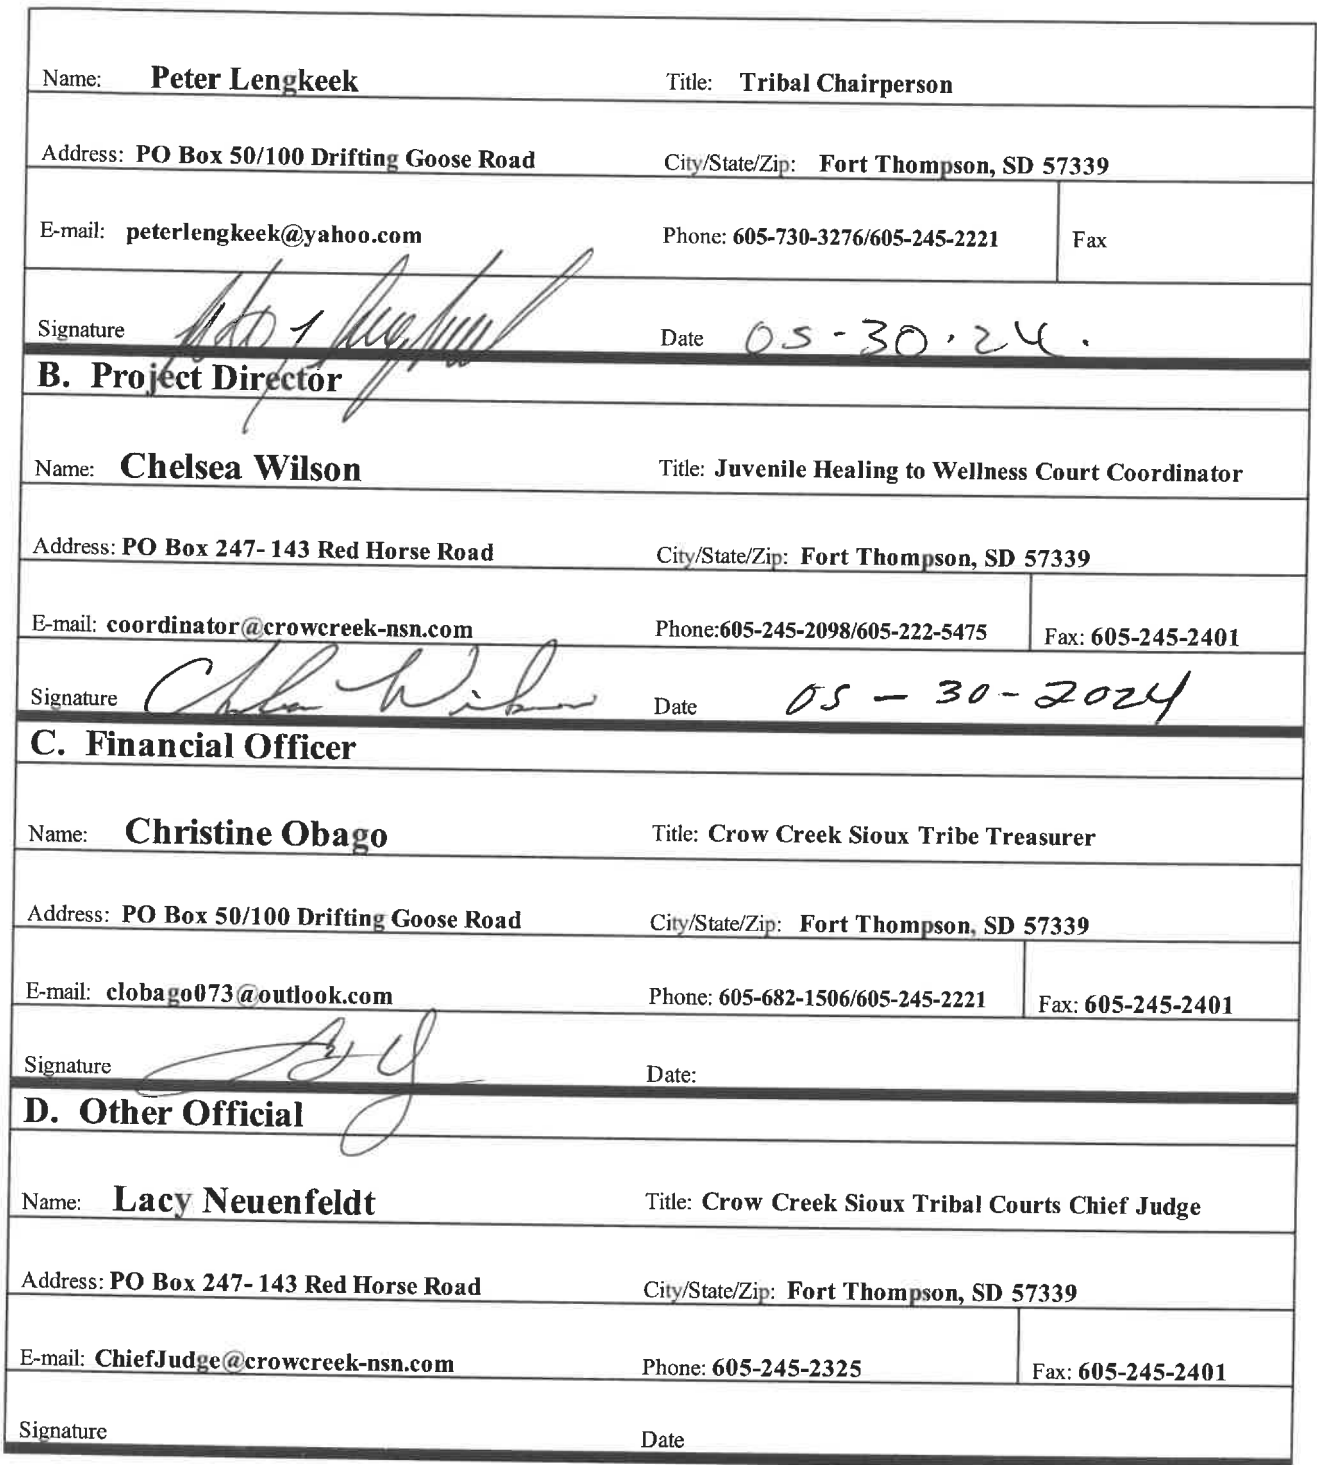 Name: Peter Lengkeek Title: Tribal Chairperson
Address: PO Box 50/100 Drifting Goose Road City/State/Zip: Fort Thompson, SD 57339
E-mail: peterlengkeek@yahoo.com Phone: 605-730-3276/605-245-2221 Fax
Signature Date 05-30-24.
B. Project Director
Name: Chelsea Wilson Title: Juvenile Healing to Wellness Court Coordinator
Address: PO Box 247- 143 Red Horse Road City/State/Zip: Fort Thompson, SD 57339
E-mail: coordinator@crowcreek-nsn.com Phone:605-245-2098/605-222-5475 Fax: 605-245-2401
Signature Chelsea Wilson Date 05-30-2024
C. Financial Officer
Name: Christine Obago Title: Crow Creek Sioux Tribe Treasurer
Address: PO Box 50/100 Drifting Goose Road City/State/Zip: Fort Thompson, SD 57339
E-mail: clobago073@outlook.com Phone: 605-682-1506/605-245-2221 Fax: 605-245-2401
Signature Date:
D. Other Official
Name: Lacy Neuenfeldt Title: Crow Creek Sioux Tribal Courts Chief Judge
Address: PO Box 247- 143 Red Horse Road City/State/Zip: Fort Thompson, SD 57339
E-mail: ChiefJudge@crowcreek-nsn.com Phone: 605-245-2325 Fax: 605-245-2401
Signature Date